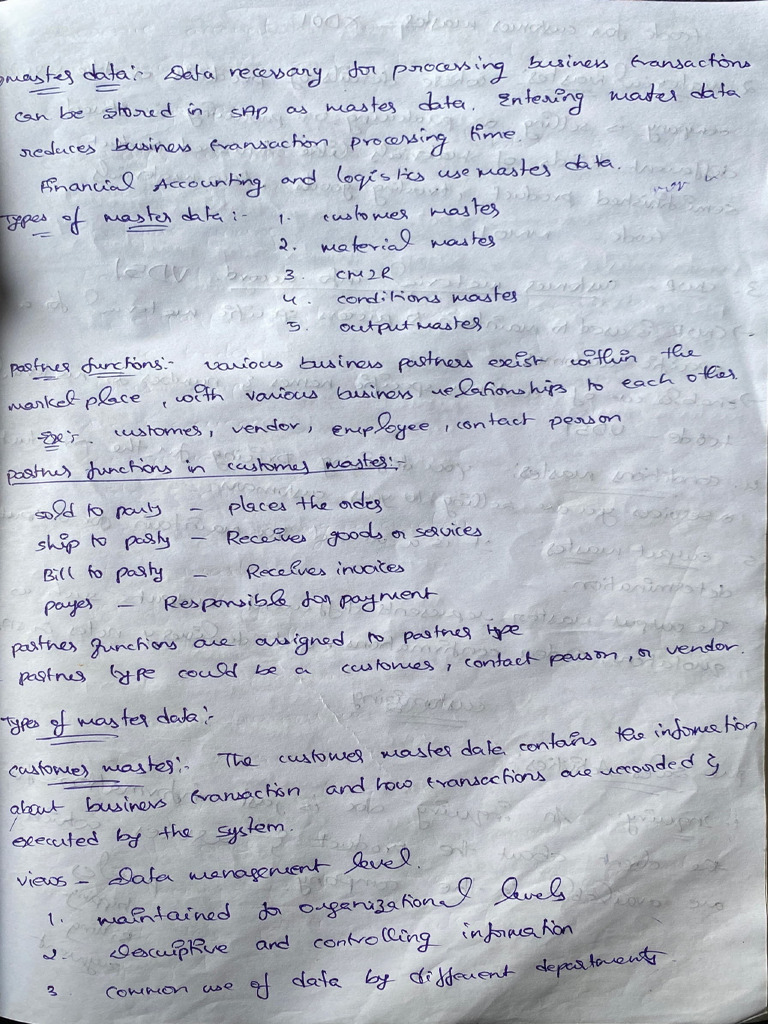 master data:- Data necessary for processing business transactions
can be stored in SAP as master data. Entering master data
reduces business transaction processing time.
Financial Accounting and logistics use master data.
Types of master data:- 1. customer master
2. material master
3. CM2R
4. conditions master
5. output master
partner functions:- various business partners exist within the
market place, with various business relationships to each other.
Ex:- customer, vendor, employee, contact person
partner functions in customer master:-
sold to party - places the order
ship to party - Receives goods or services
Bill to party - Receives invoices
payer - Responsible for payment
partner functions are assigned to partner type
partner type could be a customer, contact person, or vendor.
Types of master data:-
customer master:- The customer master data contains the information
about business transaction and how transactions are recorded &
executed by the system.
views - Data management level.
1. maintained for organizational levels
2. Descriptive and controlling information
3 common use of data by different departments.